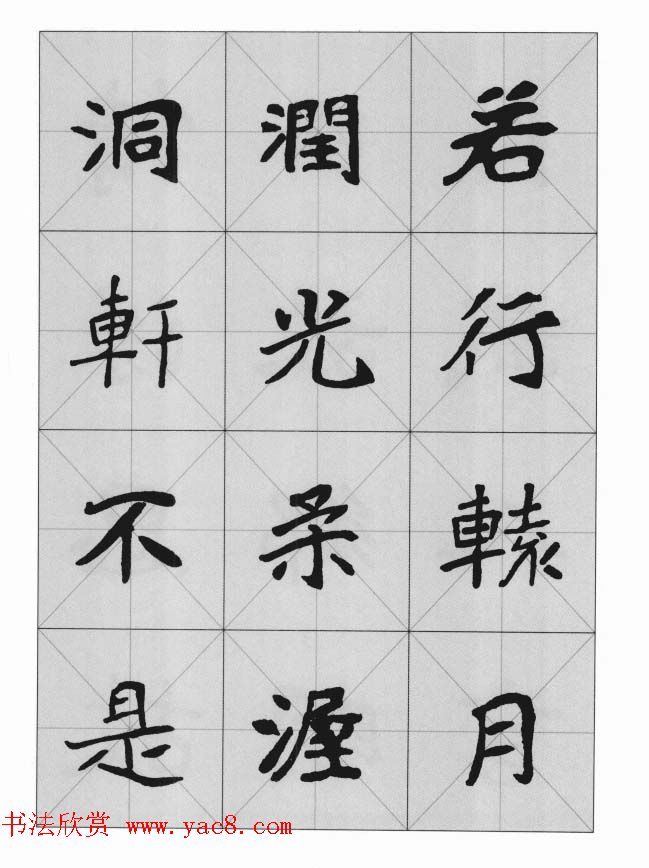 若行轅月
潤光柔渥
洞軒不是
书法欣赏 www.yac8.com